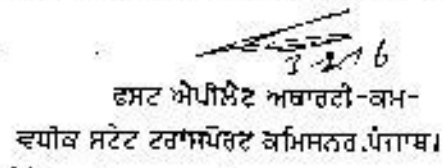 ਫਸਟ ਐਪੀਲੈਟ ਅਥਾਰਟੀ-ਕਮ-
ਵਧੀਕ ਸਟੇਟ ਟਰਾਂਸਪੋਰਟ ਕਮਿਸਨਰ,ਪੰਜਾਬ।